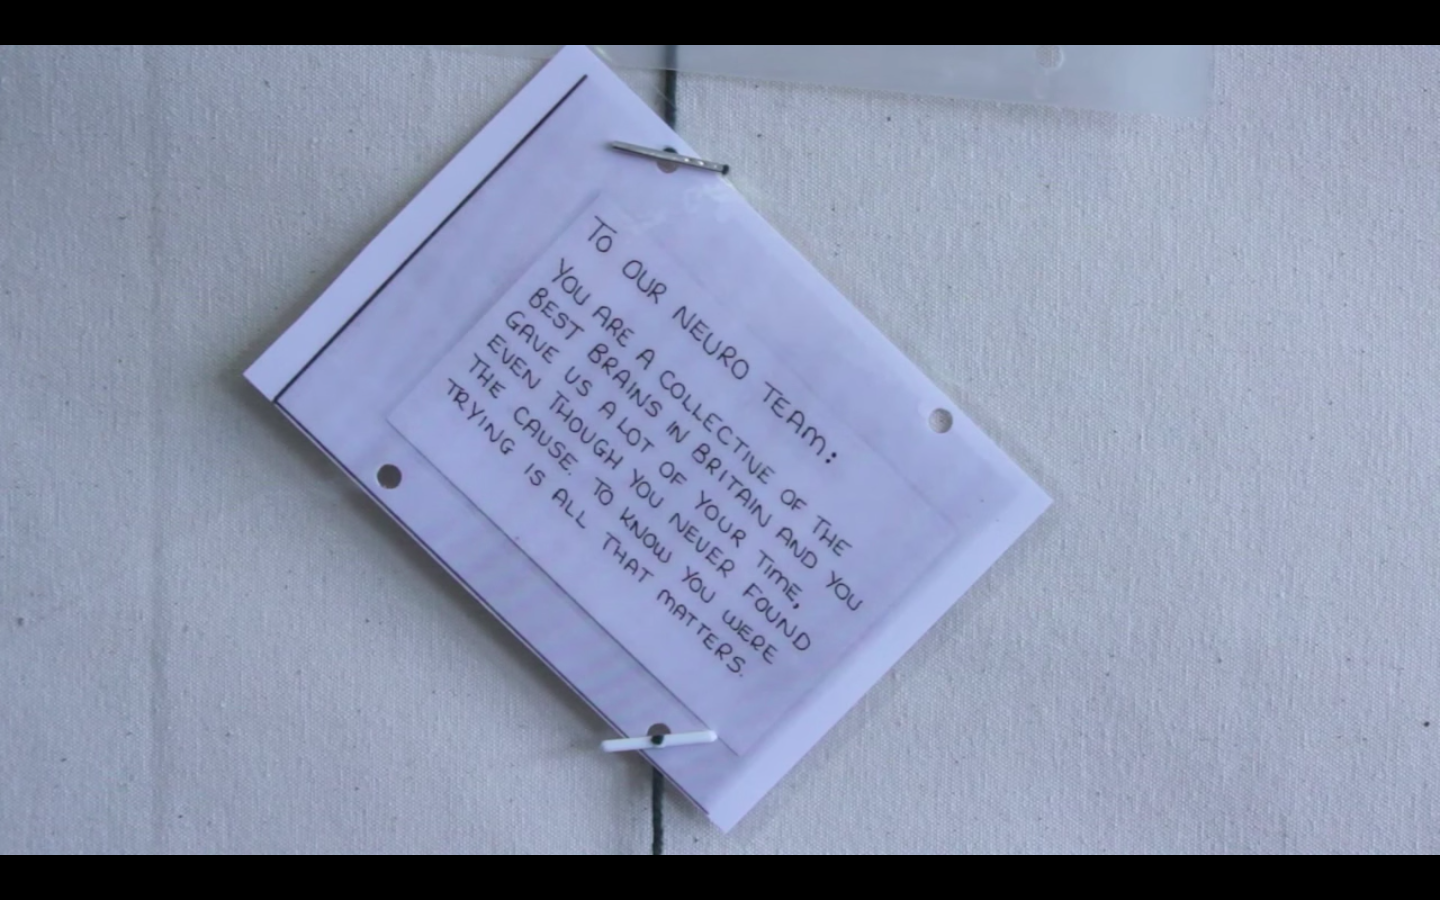 TO OUR NEURO TEAM:
YOU ARE A COLLECTIVE OF THE
BEST BRAINS IN BRITAIN AND YOU
GAVE US A LOT OF YOUR TIME,
EVEN THOUGH YOU NEVER FOUND
THE CAUSE. TO KNOW YOU WERE
TRYING IS ALL THAT MATTERS.